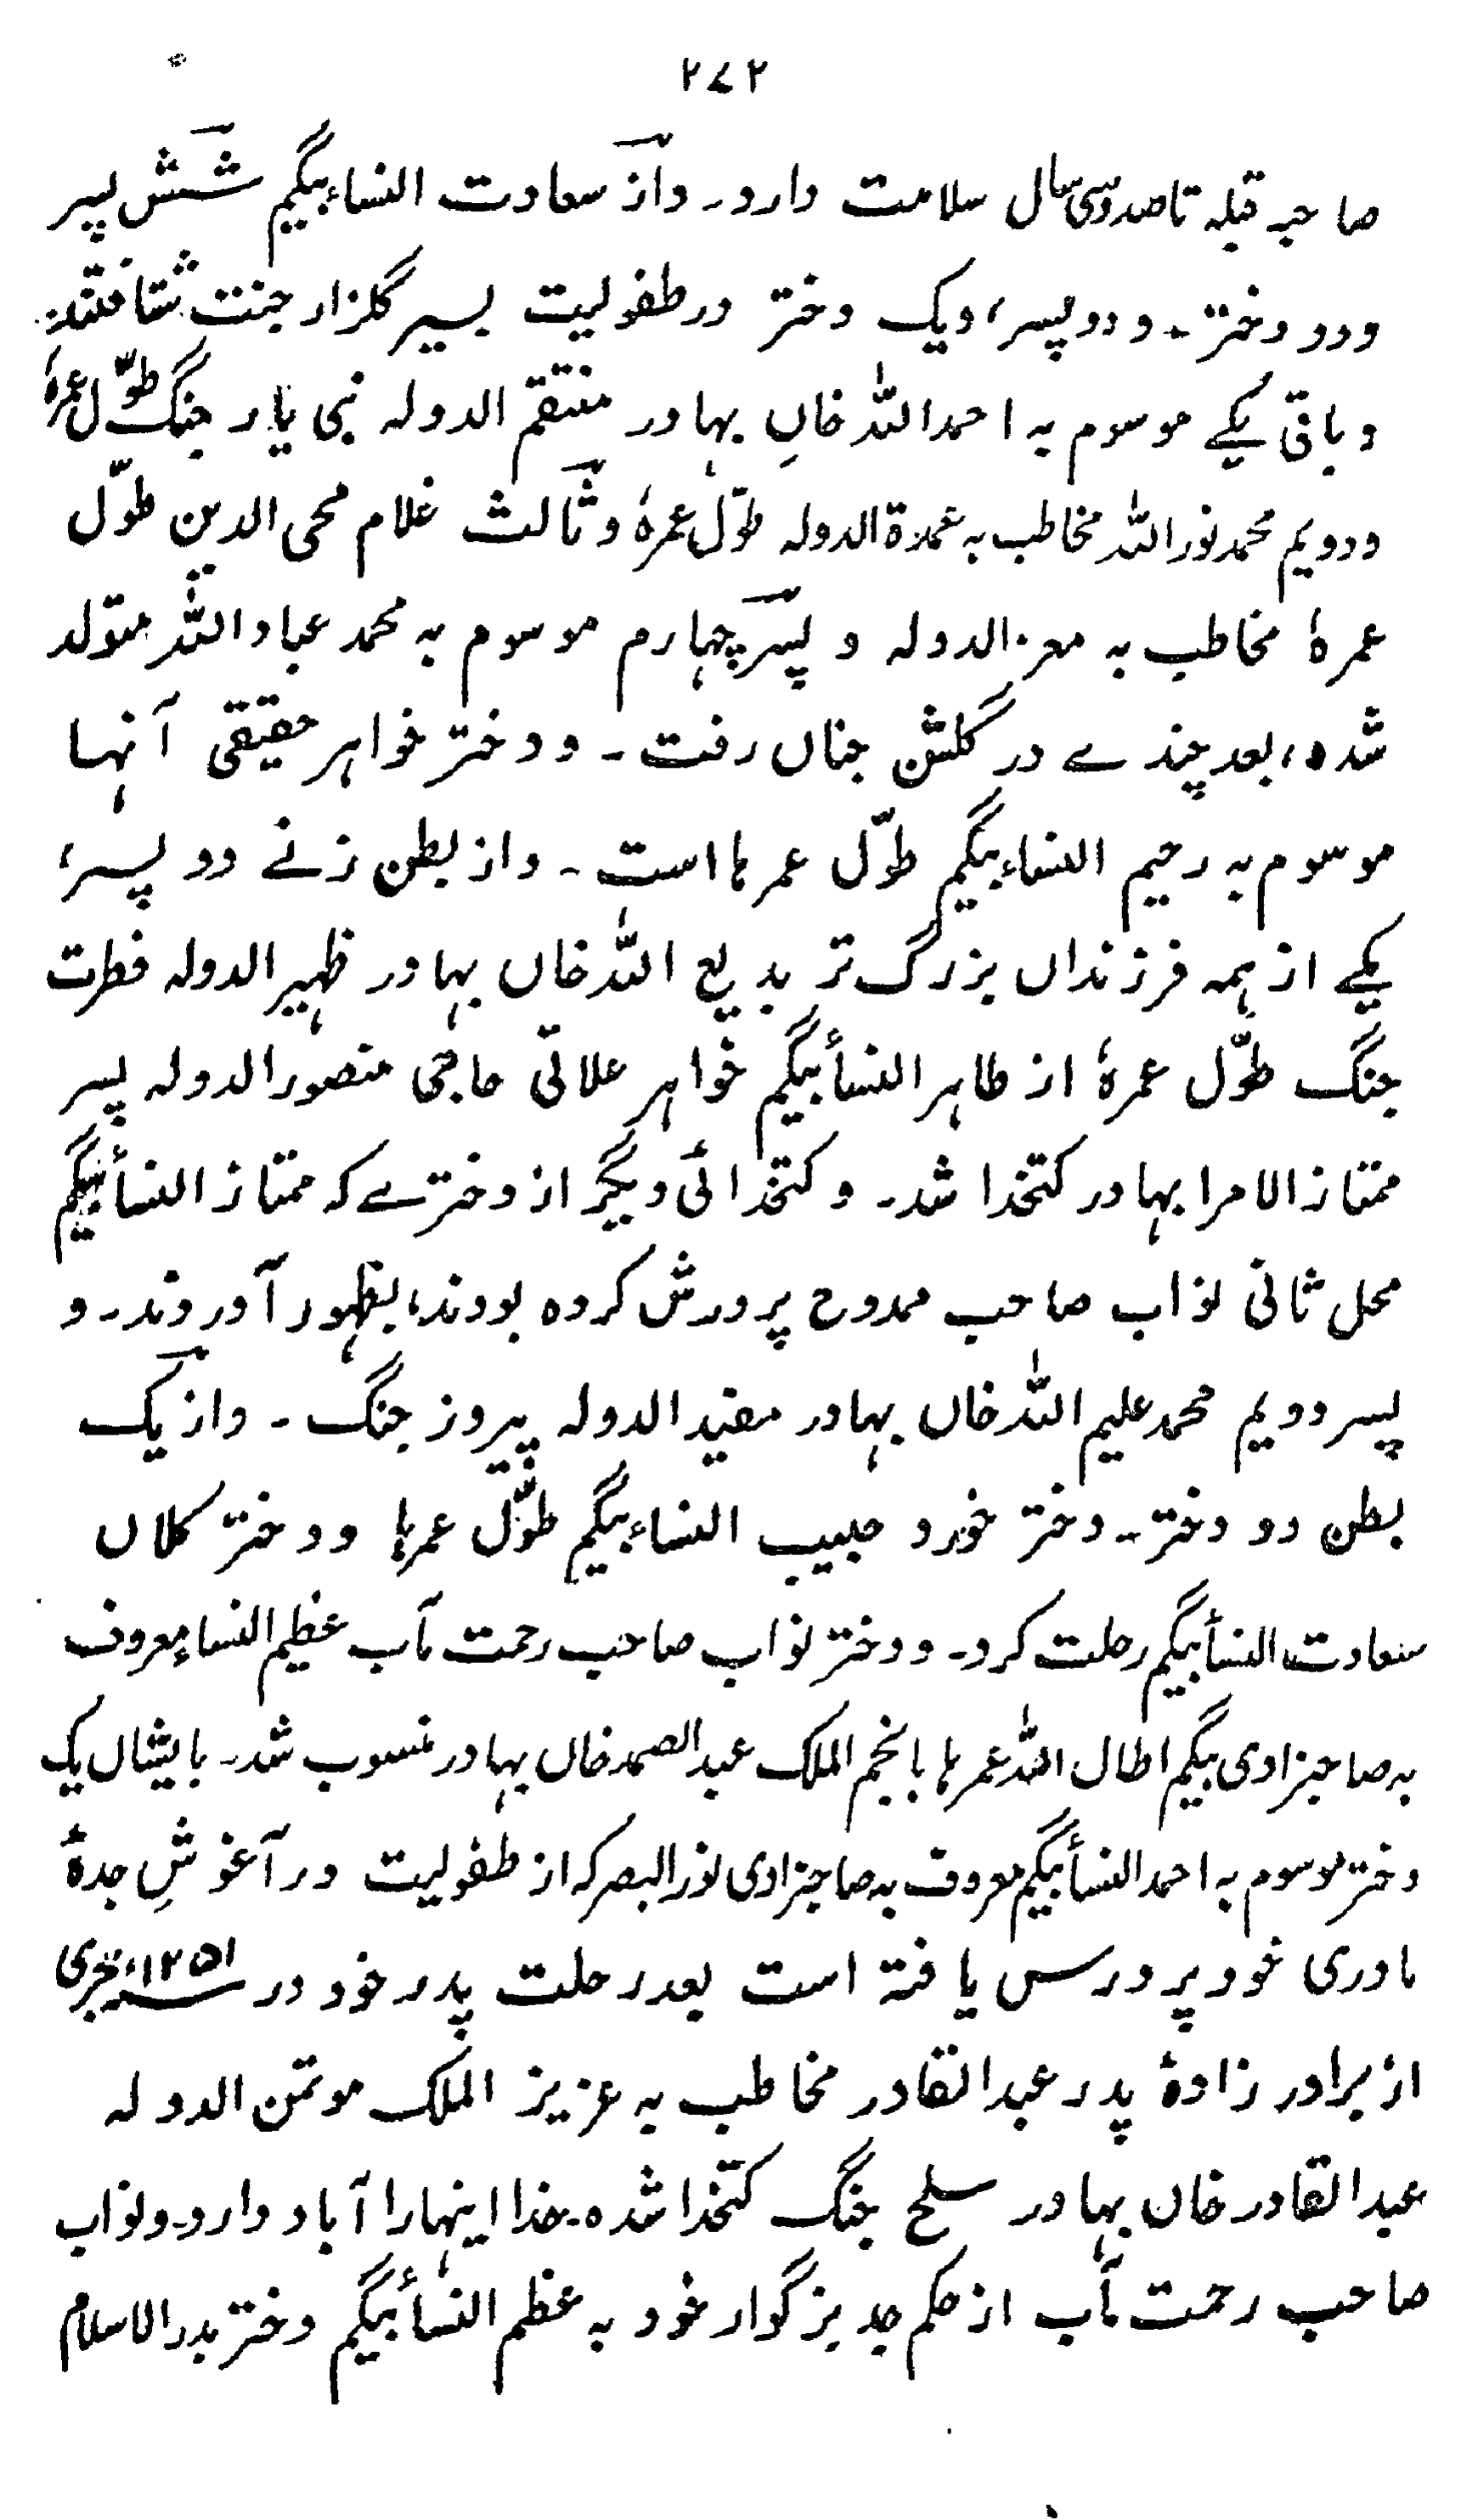 ۲۷۲
صاحبہ قبلہ تا صد وسی سال سلامت دارد۔ و از سعادت النساء بیگم شش پسر
و دو دختر۔ و دو پسر، و یک دختر در طفولیت بسیر گلزار جنت شتافتند۔
و باقی یکے موسوم بہ احمد اللہ خاں بہادر منتقم الدولہ نبی یار جنگ طوّل عمرہٗ
و دویم محمد نور اللہ مخاطب بہ عمدۃ الدولہ طوّل عمرہٗ و ثالث غلام محی الدین طوّل
عمرہٗ مخاطب بہ معز الدولہ و پسر چہارم موسوم بہ محمد عباد اللہ متولد
شدہ، بعد چندے در گلشن جناں رفت۔ و دختر خواہر حقیقی آنہا
موسوم بہ رحیم النساء بیگم طوّل عمرہا است۔ و از بطن زنے دو پسر،
یکے از ہمہ فرزنداں بزرگ تر بدیع اللہ خاں بہادر ظہیر الدولہ فطرت
جنگ طوّل عمرہٗ از طاہر النسأ بیگم خواہر علاتی حاجی منصور الدولہ پسر
ممتاز الامرا بہادر کتخدا شد۔ و کتخدائی دیگر از دخترے کہ ممتاز النسأ بیگم
محل ثانی نواب صاحب ممدوح پرورش کردہ بودند، بظہور آوردند۔ و
پسر دویم محمد علیم اللہ خاں بہادر مفید الدولہ پیروز جنگ۔ و از یک
بطن دو دختر۔ دختر خورد حبیب النساء بیگم طوّل عمرہا و دختر کلاں
سعادت النسأ بیگم رحلت کرد۔ و دختر نواب صاحب رحمت مآب عظیم النساء معروف
بہ صاحبزادی بیگم اطال اللہ عمرہا با نجم الملک عبد الصمد خاں بہادر منسوب شد۔ بایشاں یک
دختر موسوم بہ احمد النسأ بیگم معروف بہ صاحبزادی نور البصر کہ از طفولیت در آغوشِ جدۂ
مادری خود پرورس یافتہ است بعد رحلت پدر خود در سنہ ۱۲۵۱ ہجری
از برادر زادۂ پدر عبد القادر مخاطب بہ عزیز الملک موتمن الدولہ
عبد القادر خاں بہادر سلح جنگ کتخدا شدہ۔ خدا اینہا را آباد دارد۔ و نواب
صاحب رحمت مآب از حکم جد بزرگوار خود بہ عظم النسأ بیگم دختر بدر الاسلام